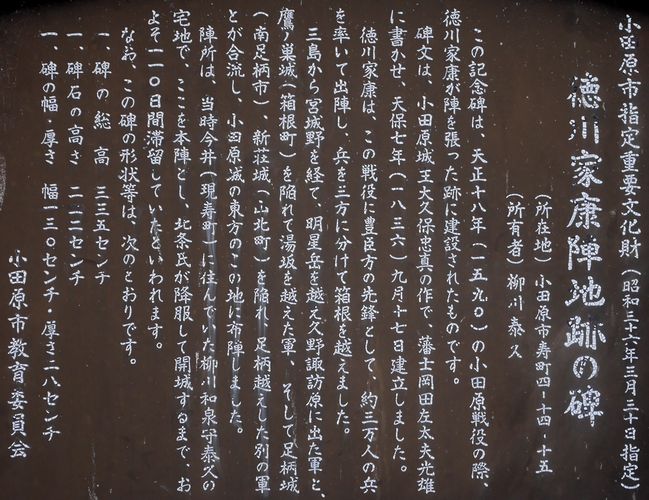 小田原市指定重要文化財（昭和三十六年三月三十日指定）
徳川家康陣地跡の碑
（所在地）小田原市寿町四-十四-十五
（所有者）柳川泰久
この記念碑は、天正十八年（一五九〇）の小田原戦役の際、
徳川家康が陣を張った跡に建設されたものです。
碑文は、小田原城主大久保忠真の作で、藩士岡田左太夫光雄
に書かせ、天保七年（一八三六）九月十七日建立しました。
徳川家康は、この戦役に豊臣方の先鋒として、約三万人の兵
を率いて出陣し、兵を三方に分けて箱根を越えました。
三島から宮城野を経て、明星岳を越え久野諏訪原に出た軍と、
鷹ノ巣城（箱根町）を陥れて湯坂を越えた軍　そして足柄城
（南足柄市）、新荘城（山北町）を陥れ、足柄越えした別の軍
とが合流し、小田原城の東方のこの地に布陣しました。
陣所は、当時今井（現寿町）に住んでいた柳川和泉守泰久の
宅地で、ここを本陣とし、北条氏が降服して開城するまで、お
よそ一一〇日間滞留していたといわれます。
なお、この碑の形状等は、次のとおりです。
一、碑の総高　三三五センチ
一、碑石の高さ　二二二センチ
一、碑の幅・厚さ　幅一三〇センチ・厚さ二八センチ
小田原市教育委員会